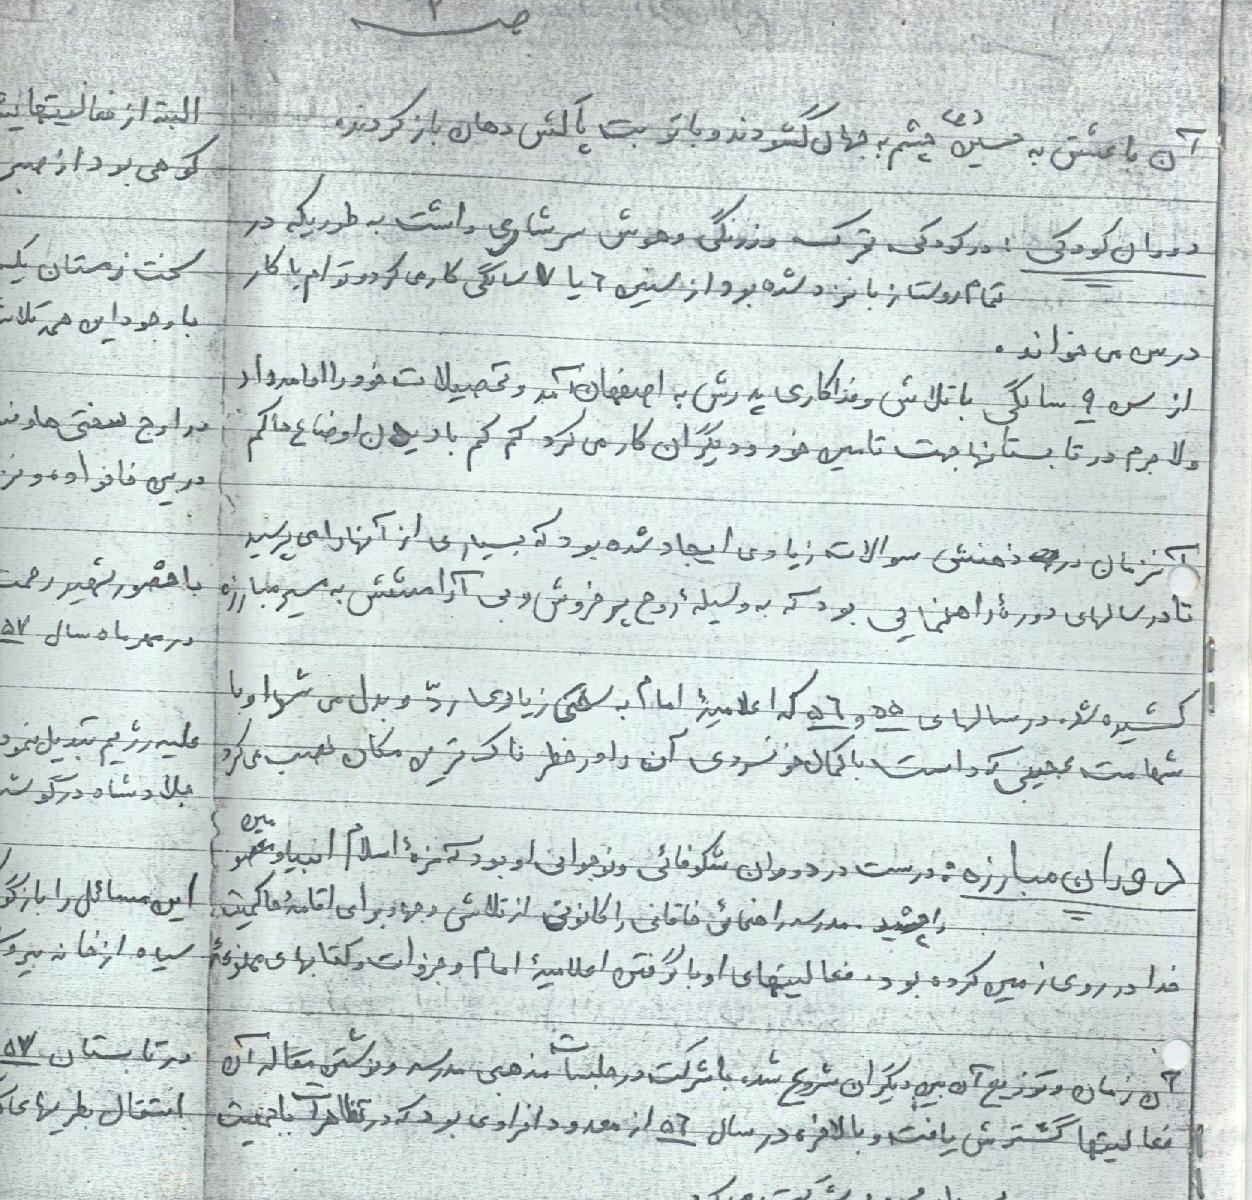 ص ۲
آن با عشق به حسین (ع) چشم به جهان گشودند و با تربت پاکش دهان باز کردند.
دوران کودکی : در کودکی تحرک و زرنگی و هوش سرشاری داشت به طوریکه در
تمام روستا زبانزد شده بود از سنین ۶ یا ۷ سالگی کار می کرد و توام با کار
درس می خواند .
از سن ۹ سالگی با تلاش و فداکاری پدرش به اصفهان آمد و تحصیلات خود را ادامه داد
ولاجرم در تابستانها جهت تامین خود و دیگران کار می کرد کم کم با دیدن اوضاع حاکم
آنزمان در ذهنش سوالات زیادی ایجاد شده بود که بسیاری از آنها را می پرسید
تا در سالهای دورهٔ راهنمایی بود که به وسیلهٔ روح پر خروش و بی آرامشش به مسیر مبارزه
کشیده شد. در سالهای ۵۵ و ۵۶ که اعلامیهٔ امام به سختی زیادی ردّ و بدل می شد او با
شهامت عجیبی که داشت با کمال خونسردی آن را در خطرناک ترین مکان نصب می کرد
دوران مبارزه : درست در دوران شکوفائی و نوجوانی او بود که ثمرهٔ اسلام انبیا و معصومین
را چشید . مدرسه راهنمائی خاقانی را کانونی از تلاش و جهاد برای اقامهٔ حاکمیت
خدا در روی زمین کرده بود . فعالیتهای او با گرفتن اعلامیهٔ امام و جزوات و کتابهای ممنوعهٔ
آن زمان و توزیع آن بین دیگران شروع شده با شرکت در جلسات مذهبی مدرسه و نوشتن مقاله آن
فعالیتها گسترش یافت و بالاخره در سال ۵۶ از معدود افرادی بود که در تظاهرات با جمعیت
البته از فعالیتهایش
کوهی بود از صبر
سخت زمستان یک
با وجود این همه تلاش
در اوج سختی ها و
در بین خانواده و
با حضور شهید رحمت
در مهر ماه سال ۵۷
علیه رژیم تبدیل نمود
جلاد شاه در گوشه
این مسائل را بازگو
سیاه از خانه بیرون
در تابستان ۵۷
انتقال بطریهای